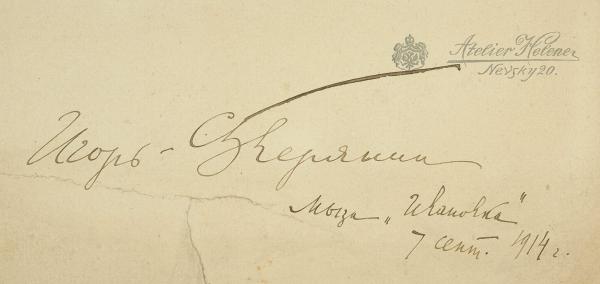 Atelier Helener
Nevsky 20.
Игорь-Северянин
Мыза „Ивановка"
7 сент. 1914 г.